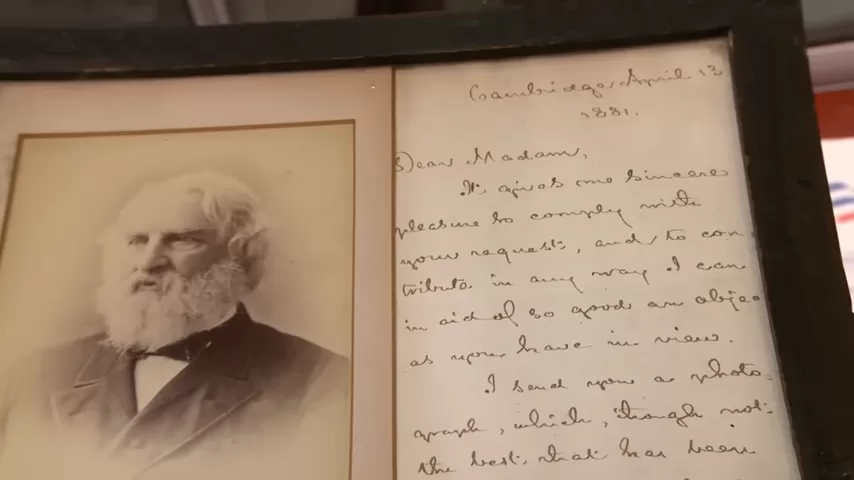 Cambridge April 13
1881.
Dear Madam,
It gives me sincere
pleasure to comply with
your request, and to con-
tribute in any way I can
in aid of so good an objec
as you have in view.
I send you a photo-
graph, which, though not
the best that has been